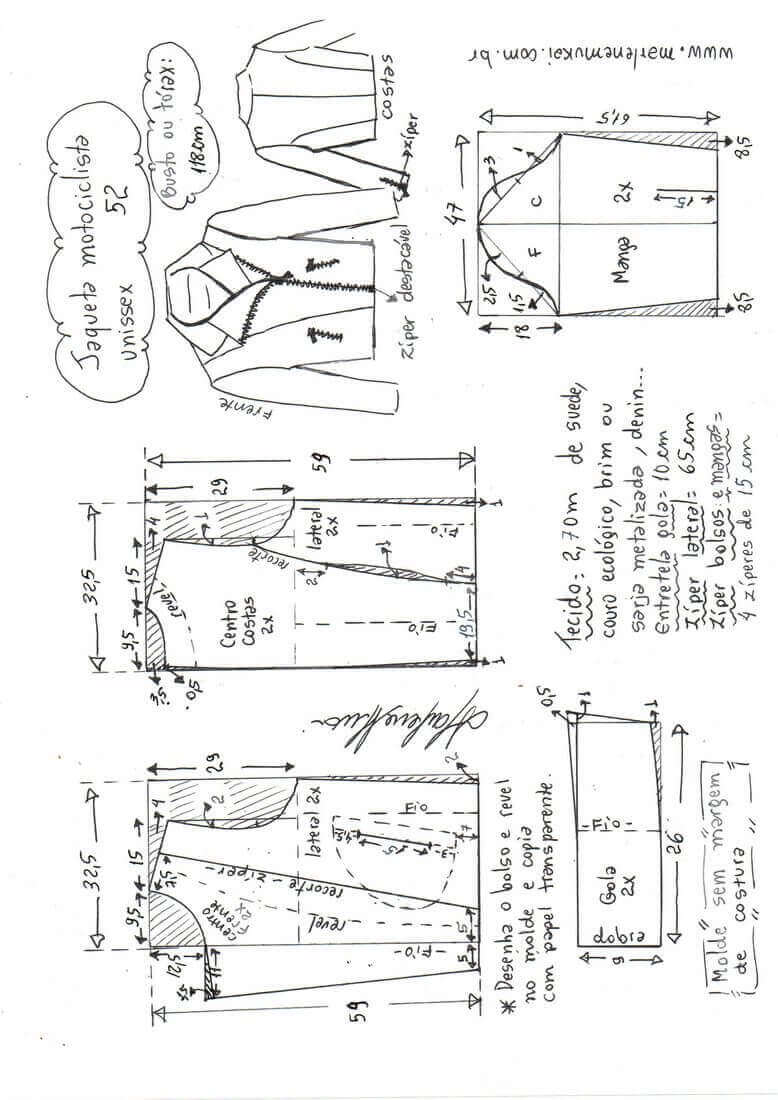 Jaqueta motociclista
unissex 52
Busto ou tórax:
118cm
costas
zíper
Frente
zíper destacável
www.marlenemukai.com.br
47
61,5
18
2,5
1,5
3
1
F
C
Manga
2x
15
8,5
8,5
32,5
9,5
15
4
3,5
0,5
29
59
1
revel
recorte
Centro
costas
2x
lateral
2x
Fio
Fio
2
1
4
13,5
1
1
Tecido = 2,70m de suede,
couro ecológico, brim ou
sarja metalizada, denin...
Entretela gola = 10cm
Zíper lateral = 65cm
Zíper bolsos e mangas =
4 zíperes de 15cm
32,5
9,5
15
4
7,5
12,5
11
29
59
2
centro
frente
2x
recorte - zíper
revel
lateral 2x
Fio
Fio
15
7
5
5
2
* Desenha o bolso e revel
no molde e copia
com papel transparente.
Gola
2x
dobra
Fio
9
26
0,5
1
1
"Molde sem margem"
de costura